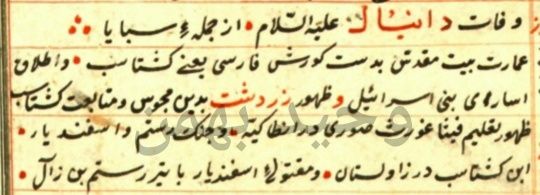 وفات دانیال علیه السّلام از جمله‌ء سبایا
عمارت بیت مقدس بدست کورش فارسی یعنے کشتاسب واطلاق
اسارهای بنی اسرائیل وظهور زردشت بدین مجوس ومتابعت کشتاسب
ظهور تعلیم فیثاغورث صوری در انطاکیّه وجنک رستم واسفندیار
ابن کشتاسب در زاولستان ومقتولئ اسفندیار با تیر رستم بن زال
وحید بهمن